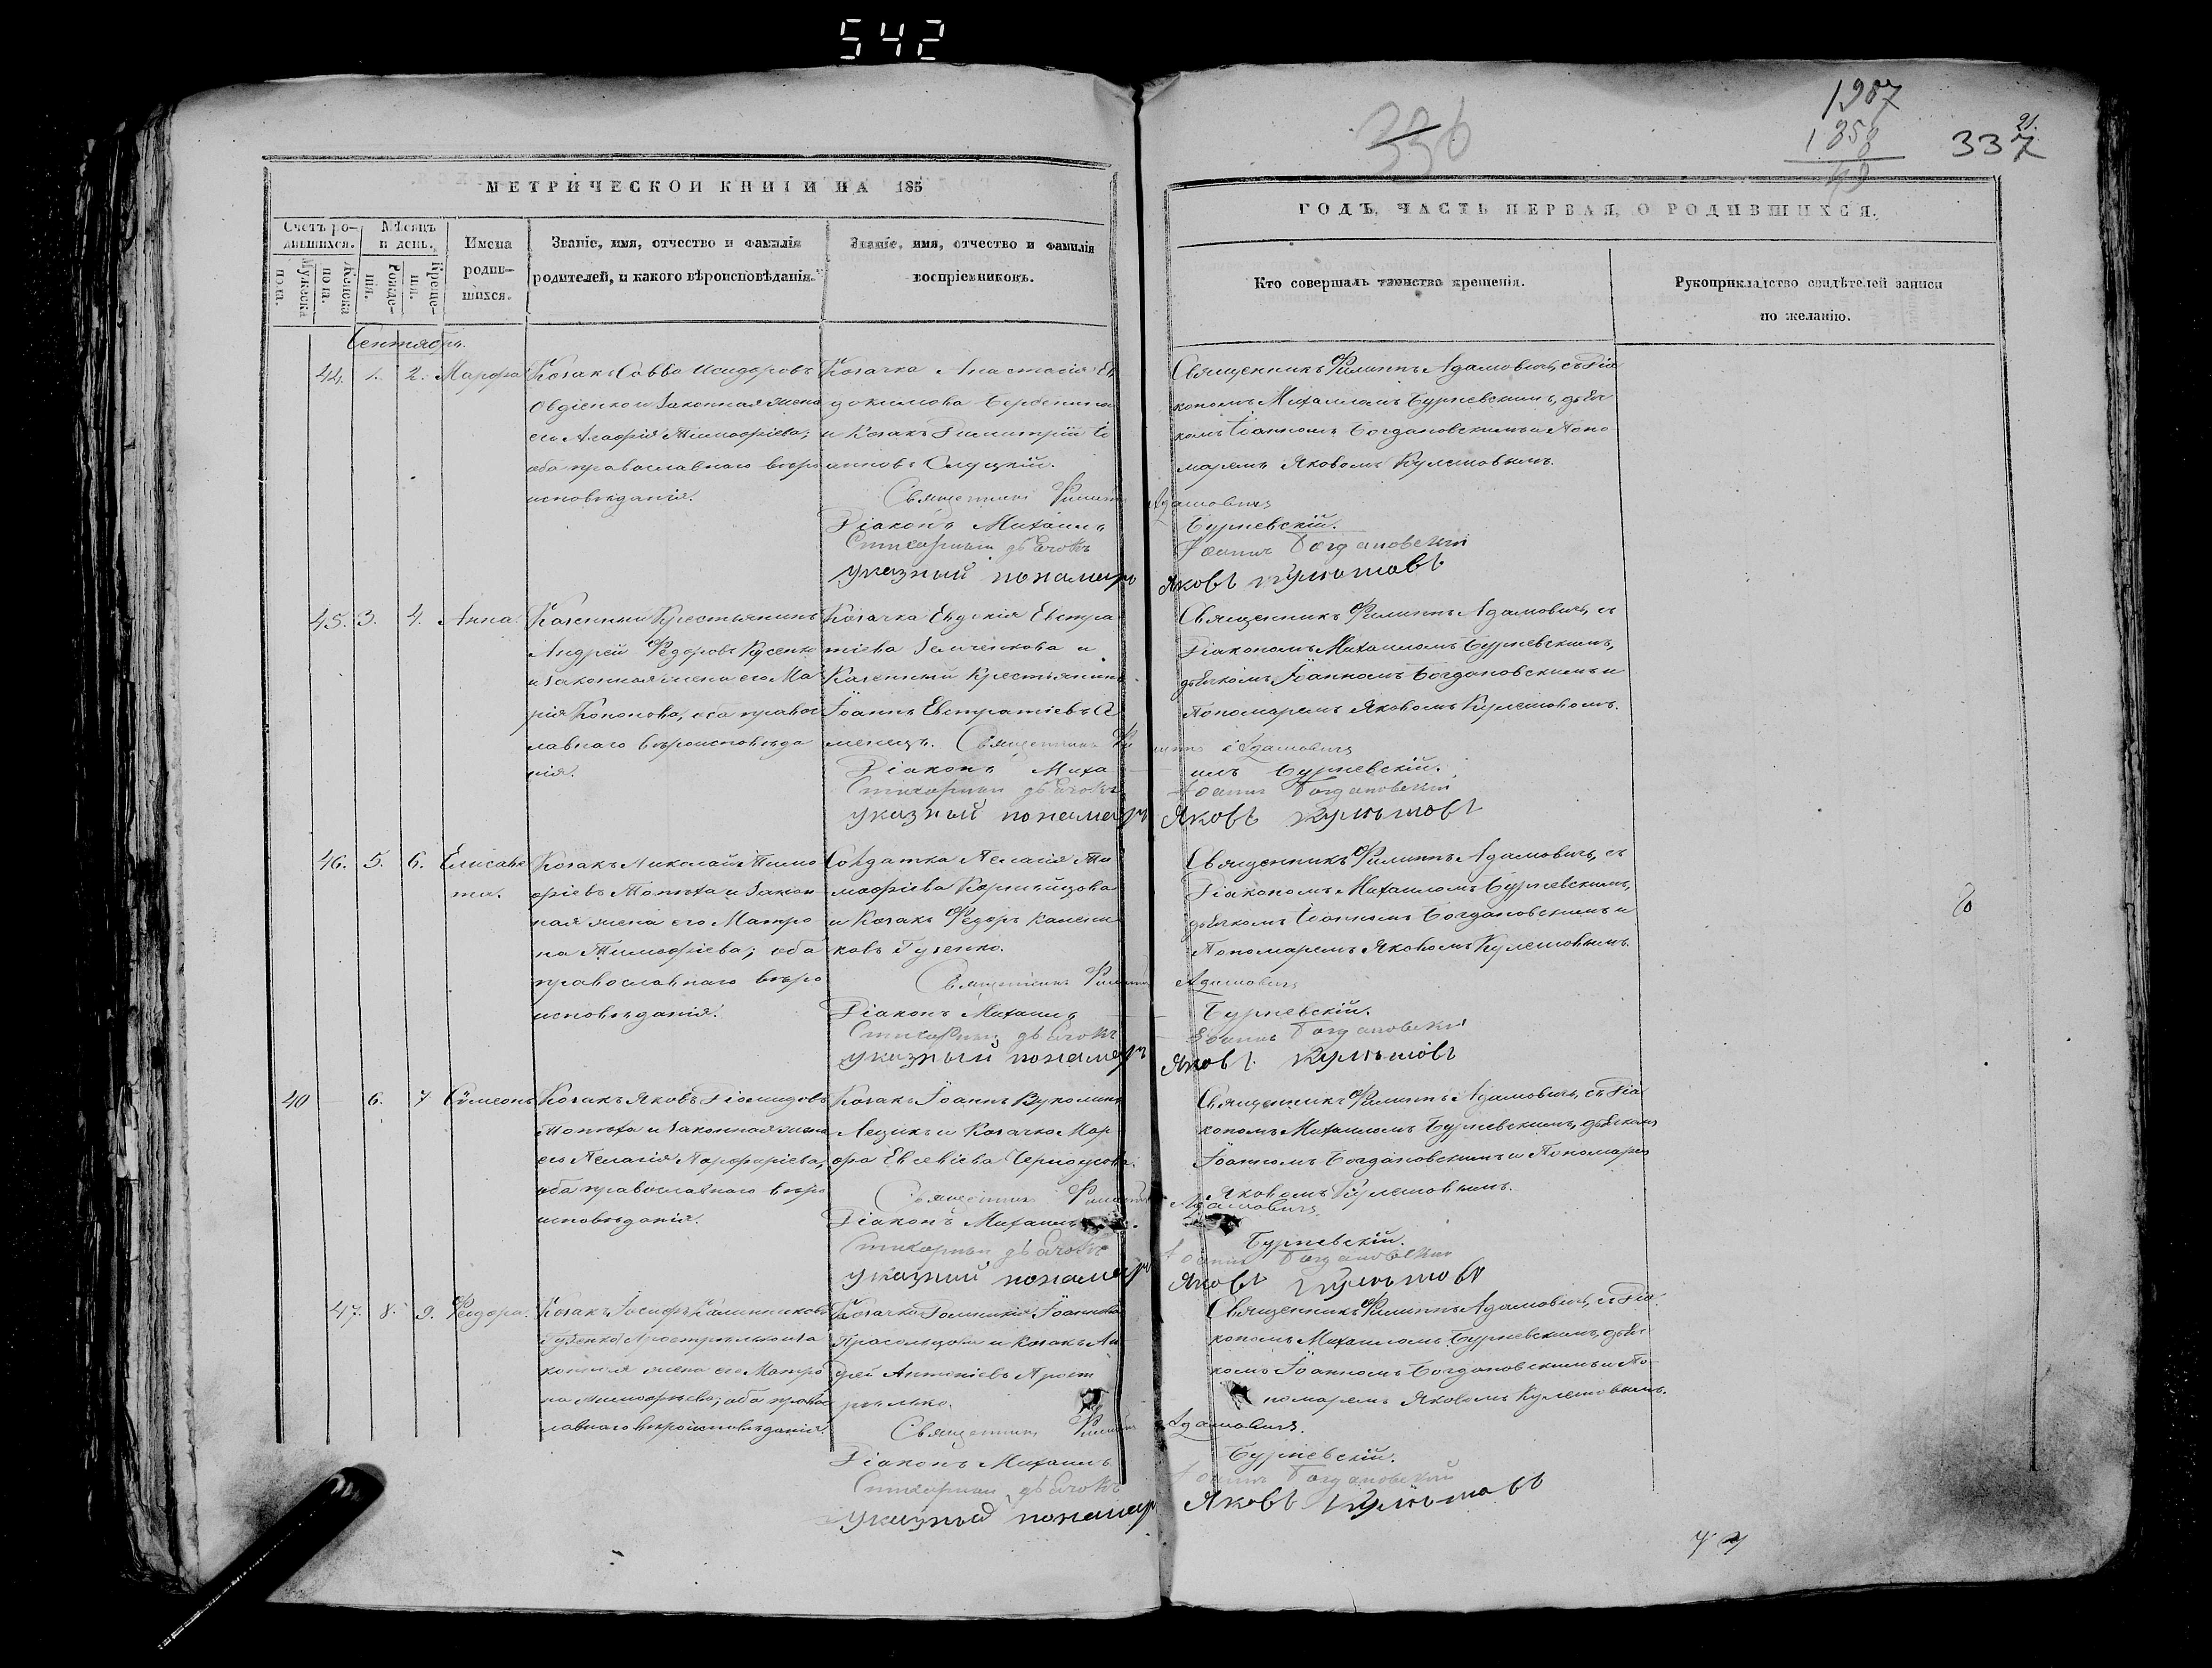 542
1907
1858
49
336
337
21.
МЕТРИЧЕСКОЙ КНИГИ НА 185
ГОДЪ, ЧАСТЬ ПЕРВАЯ, О РОДИВШИХСЯ.
Счетъ ро-
дившихся.
Мужеска
пола.
Женска
пола.
Мѣсяцъ
и день.
Рожде-
нія.
Креще-
нія.
Имена
родив-
шихся.
Званіе, имя, отчество и фамилія
родителей, и какого вѣроисповѣданія.
Званіе, имя, отчество и фамилія
воспріемниковъ.
Кто совершалъ таинство крещенія.
Рукоприкладство свидѣтелей записи
по желанію.
Сентябрь.
44. 1. 2. Марфа
Козакъ Савва Исидоровъ
Овдіенко и законная жена
его Агафія Тимофіева;
оба православнаго вѣро
исповѣданія.
Козачка Анастасія Ев
докимова
и Козакъ Димитрій Іо
анновъ
Священникъ Филиппъ Адамовичъ, съ Діа
кономъ Михаиломъ Бурневскимъ, дьяч
комъ Іоанномъ Богдановскимъ и Поно
маремъ Яковомъ Кулешовымъ.
Священникъ Филиппъ Адамовичъ
Діаконъ Михаилъ Бурневскій.
Стихарный дьячокъ Іоаннъ Богдановскій
указный понамарь Яковъ Кулѣшовъ
45. 3. 4. Анна.
Казенный Крестьянинъ
Андрей Федоровъ Кусенко
и законная жена его Ма
рія Кононова, оба правос
лавнаго вѣроисповѣда
нія.
Козачка Евдокія Евстра
тіева и
Казенный Крестьянинъ
Іоаннъ Евстратіевъ Се
менецъ.
Священникъ Филиппъ Адамовичъ, съ
Діакономъ Михаиломъ Бурневскимъ,
дьячкомъ Іоанномъ Богдановскимъ и
Пономаремъ Яковомъ Кулешовымъ.
Священникъ Филиппъ Адамовичъ
Діаконъ Михаилъ Бурневскій.
Стихарный дьячокъ Іоаннъ Богдановскій
указный понамарь Яковъ Кулѣшовъ
46. 5. 6. Елисаве
та.
Козакъ Николай Тимо
фіевъ Топѣха и закон
ная жена его Матро
на Тимофіева; оба
православнаго вѣро
исповѣданія.
Солдатка Пелагія Ти
мофіева
и Козакъ Федоръ Калени
ковъ Гузенко.
Священникъ Филиппъ Адамовичъ, съ
Діакономъ Михаиломъ Бурневскимъ,
дьячкомъ Іоанномъ Богдановскимъ и
Пономаремъ Яковомъ Кулешовымъ.
Священникъ Филиппъ Адамовичъ
Діаконъ Михаилъ Бурневскій.
Стихарный дьячокъ Іоаннъ Богдановскій
указный понамарь Яковъ Кулѣшовъ
40 6. 7 Сѵмеонъ
Козакъ Яковъ Діомидовъ
Топѣха и законная жена
его Пелагія Порфиріева,
оба православнаго вѣро
исповѣданія.
Козакъ Іоаннъ Вуколинъ
Лещикъ и Козачка Мар
фа Евсевіева Черноусова.
Священникъ Филиппъ Адамовичъ, съ Діа
кономъ Михаиломъ Бурневскимъ, дьячкомъ
Іоанномъ Богдановскимъ и Пономаремъ
Яковомъ Кулешовымъ.
Священникъ Филиппъ Адамовичъ
Діаконъ Михаилъ Бурневскій.
Стихарный дьячокъ Іоаннъ Богдановскій
указный понамарь Яковъ Кулѣшовъ
47. 8. 9. Феодора.
Козакъ Іосифъ Калинниковъ
и за
конная жена его Матро
на Тимофѣева; оба правос
лавнаго вѣроисповѣданія.
Козачка Домникія Іоаннова
и Козакъ Ан
дрей Антоніевъ Прост
рѣлько.
Священникъ Филиппъ Адамовичъ, съ Діа
кономъ Михаиломъ Бурневскимъ, дьяч
комъ Іоанномъ Богдановскимъ и По
номаремъ Яковомъ Кулешовымъ.
Священникъ Филиппъ Адамовичъ.
Діаконъ Михаилъ Бурневскій.
Стихарный дьячокъ Іоаннъ Богдановскій
указный понамарь Яковъ Кулѣшовъ